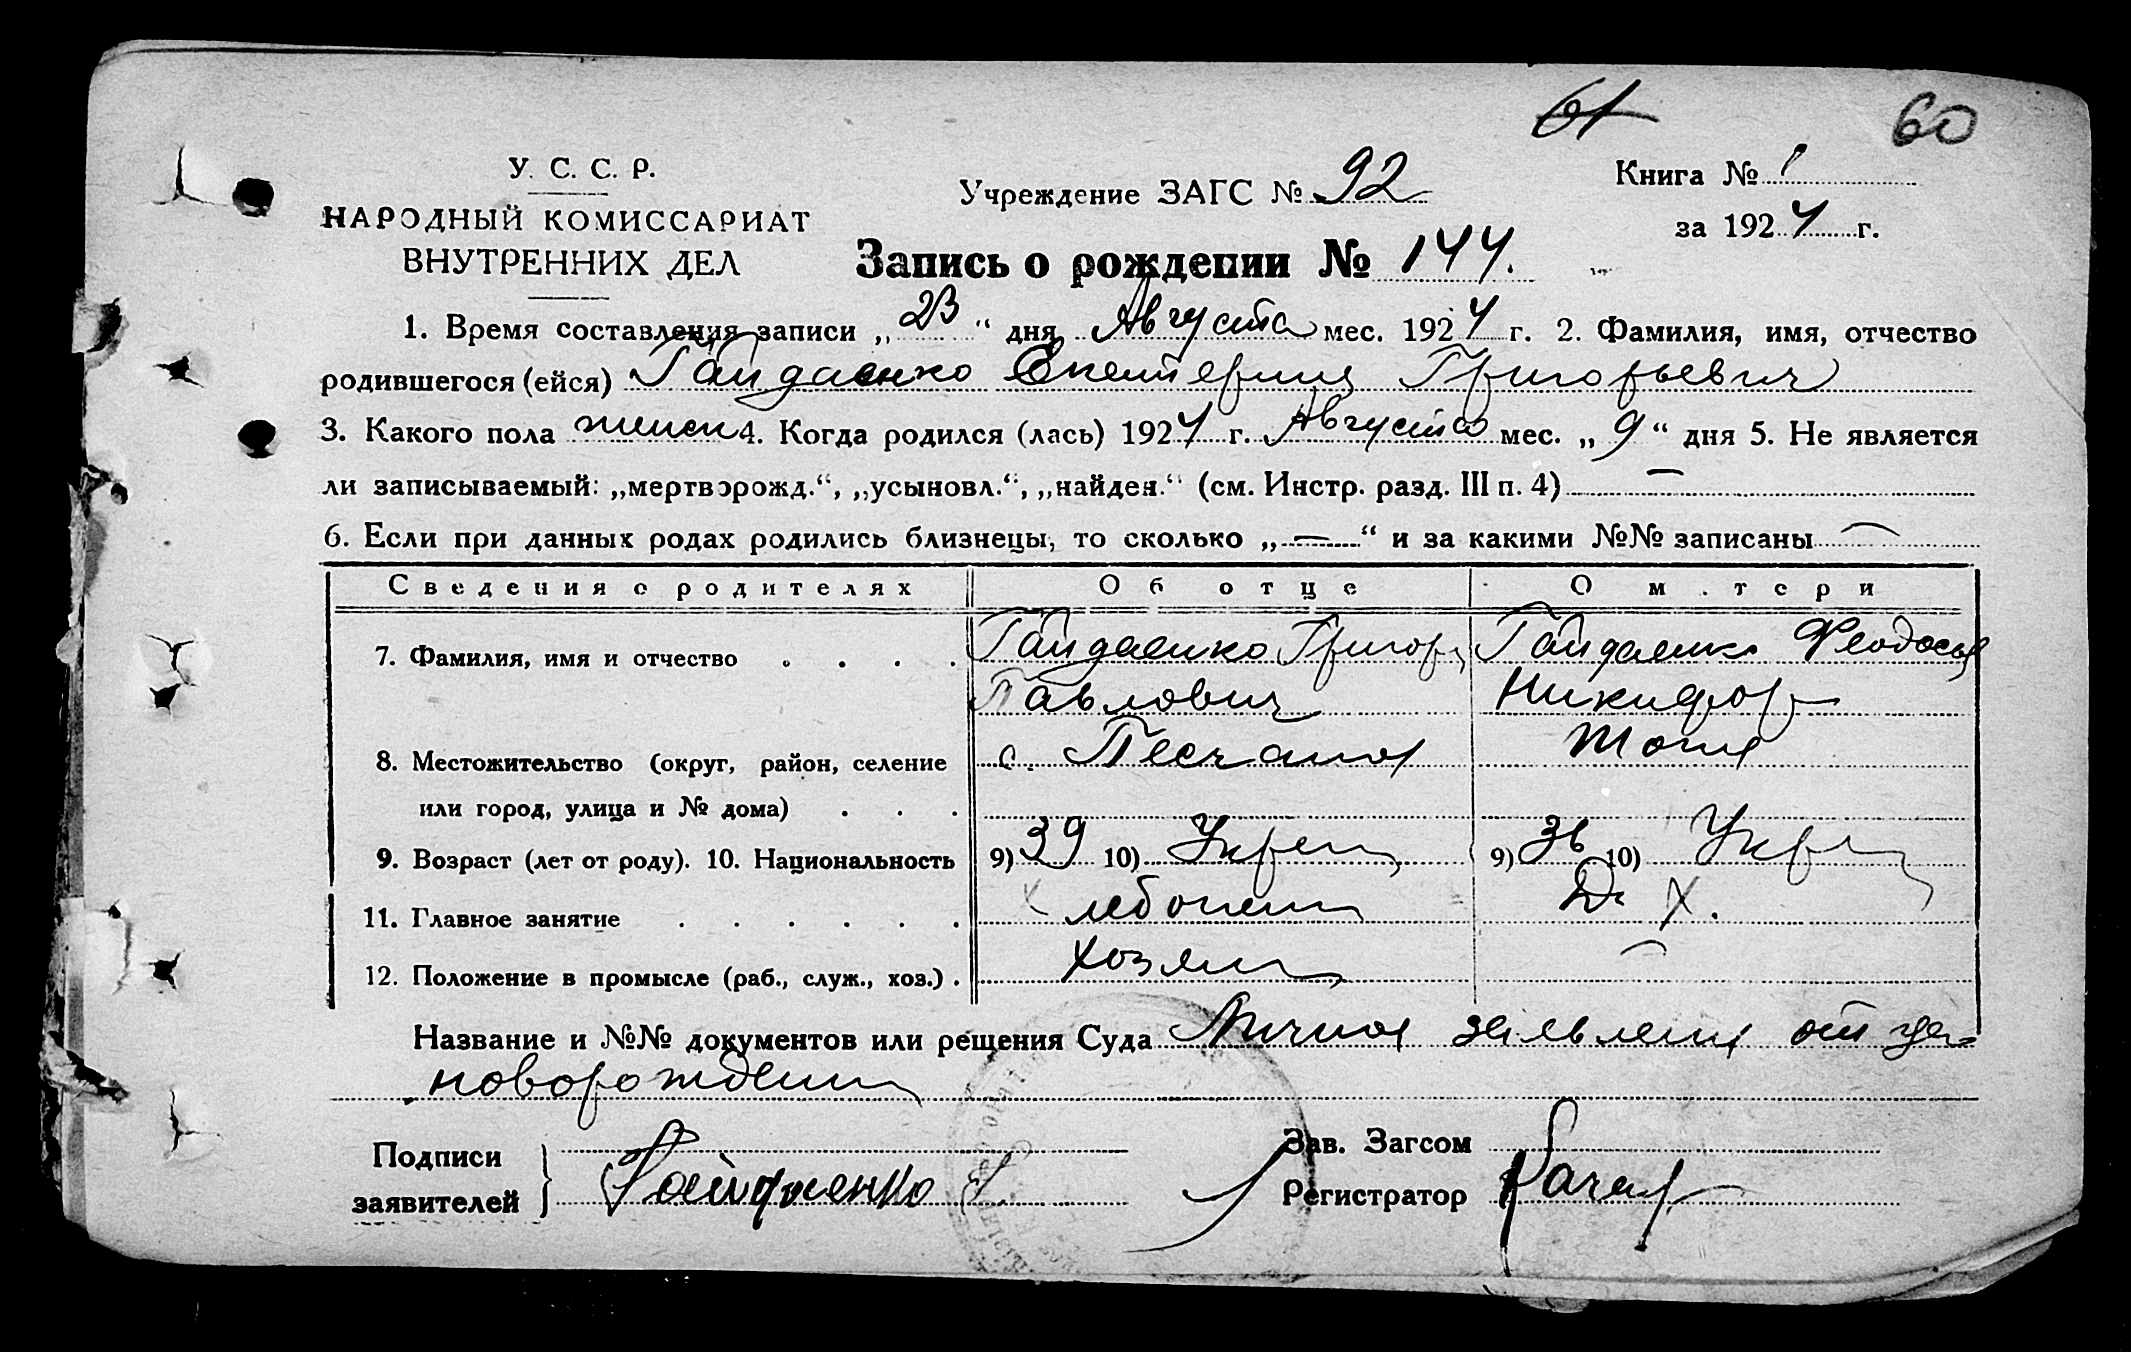 61 60
У. С. С. Р.
НАРОДНЫЙ КОМИССАРИАТ
ВНУТРЕННИХ ДЕЛ
Учреждение ЗАГС № 92
Книга № 1
за 1924 г.
Запись о рождении № 144.
1. Время составления записи „23“ дня Августа мес. 1924 г. 2. Фамилия, имя, отчество
родившегося (ейся) Гайдаенко Екатерина Григорьевич
3. Какого пола женск 4. Когда родился (лась) 1924 г. Августа мес. „9“ дня 5. Не является
ли записываемый: „мертворожд.“, „усыновл.“, „найден.“ (см. Инстр. разд. III п. 4) —
6. Если при данных родах родились близнецы, то сколько „—“ и за какими №№ записаны —
Сведения о родителях Об отце О м.тери
7. Фамилия, имя и отчество . . . . Гайдаенко Григор Гайдаенко Феодосия
Павлович Никифор
8. Местожительство (округ, район, селение с. Песчаная тоже
или город, улица и № дома) . . .
9. Возраст (лет от роду). 10. Национальность 9) 39 10) Украин 9) 36 10) Укр
11. Главное занятие . . . . . . Хлебопаш Д. Х.
12. Положение в промысле (раб., служ., хоз.) . хозяин —
Название и №№ документов или решения Суда Личная заявления от
новорожден
Подписи
заявителей } Гайдаенко
Зав. Загсом
Регистратор